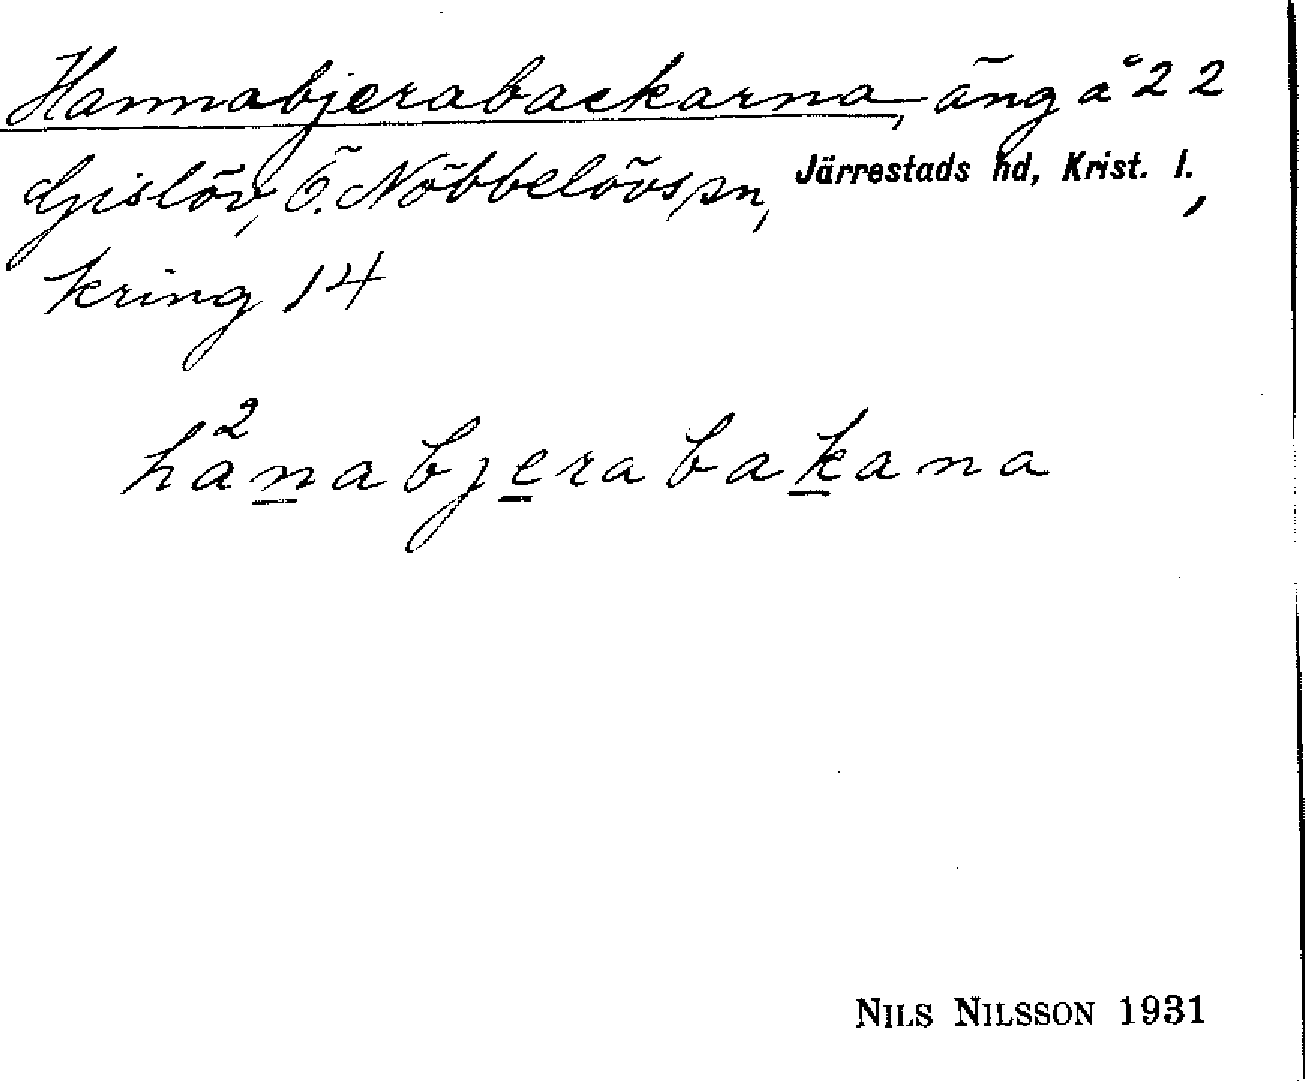 Hannabjerabackarna, äng å 22
Gislöv, Ö. Nöbbelövs sn, Järrestads hd, Krist. l.,
kring 14
ha²nabjerabakana
NILS NILSSON 1931